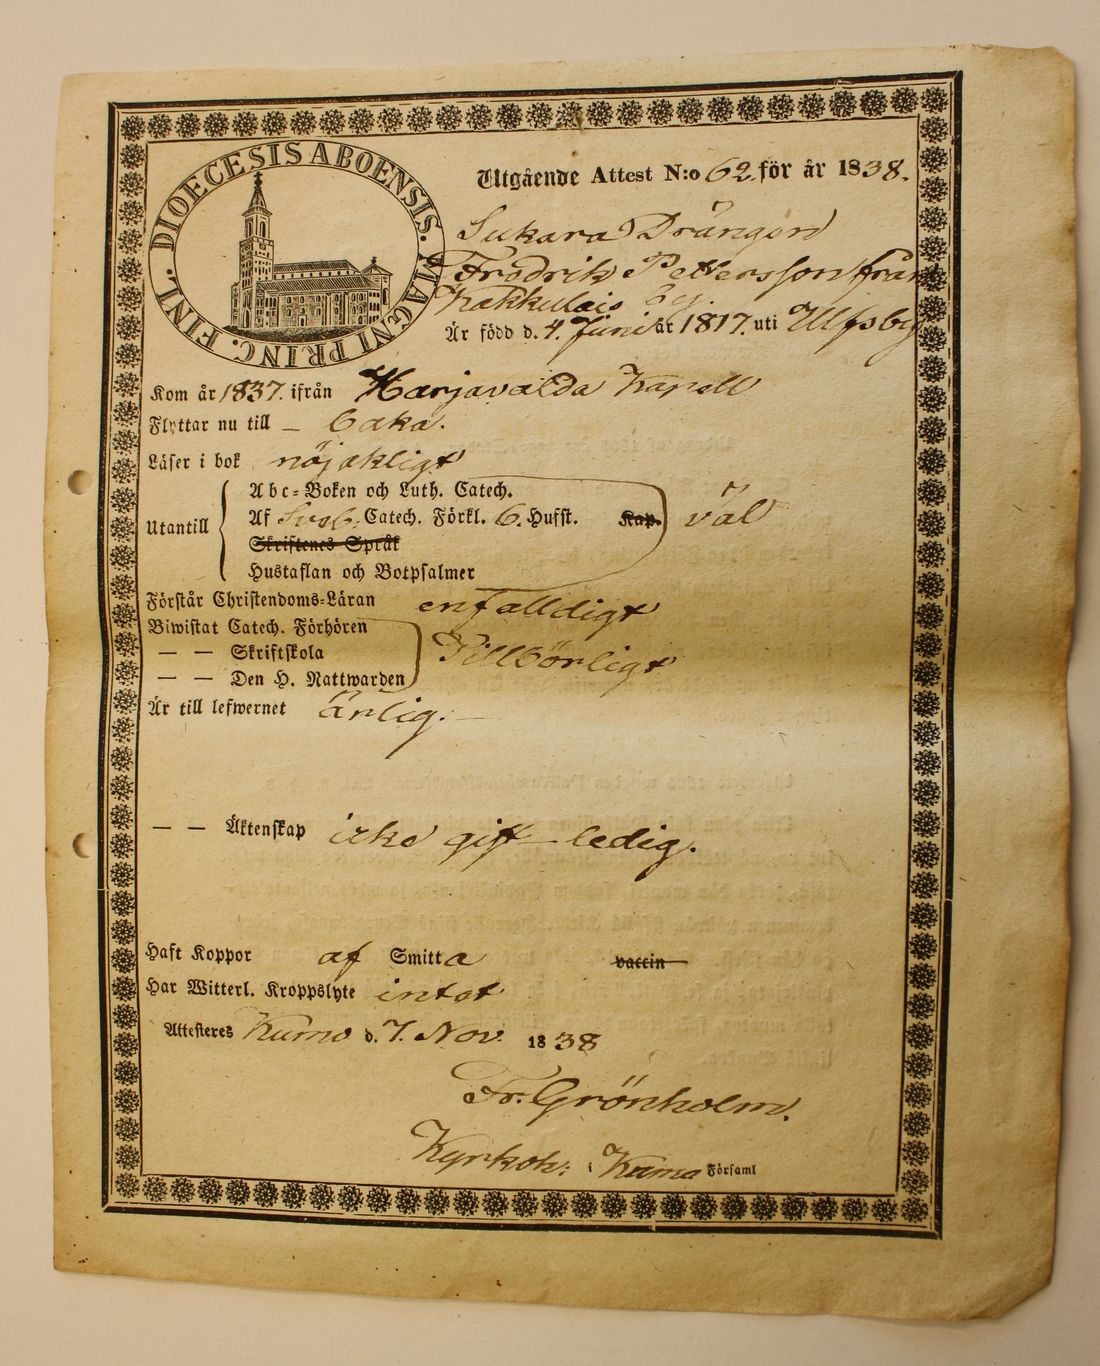 DIOECESIS ABOENSIS. MAGNI PRINC. FINL.
Utgående Attest N:o 62. för år 1838.
Sukara Drängen
Fredrik Pettersson från
Kakkulais
Är född d. 4. Juni år 1817. uti Ulfsby
Kom år 1837. ifrån Harjavalda Kapell
Flyttar nu till – baka.
Läser i bok nöjakligt
Abc-Boken och Luth. Catech.
Utantill Af Sveb. Catech. Förkl. 6. Hufst. Kap. väl
Skriftenes Språk
Hustaflan och Botpsalmer
Förstår Christendoms-Läran enfalldigt
Biwistat Catech. Förhören
— — Skriftskola Tillbörligt
— — Den H. Nattwarden
Är till lefwernet ärlig. –
— — Äktenskap icke gift – ledig.
Haft Koppor af Smitta vaccin
Har Witterl. Kroppslyte intet
Attesteres Kumo d. 7. Nov. 1838
Fr. Grönholm.
Kyrkoh: i Kumo Församl